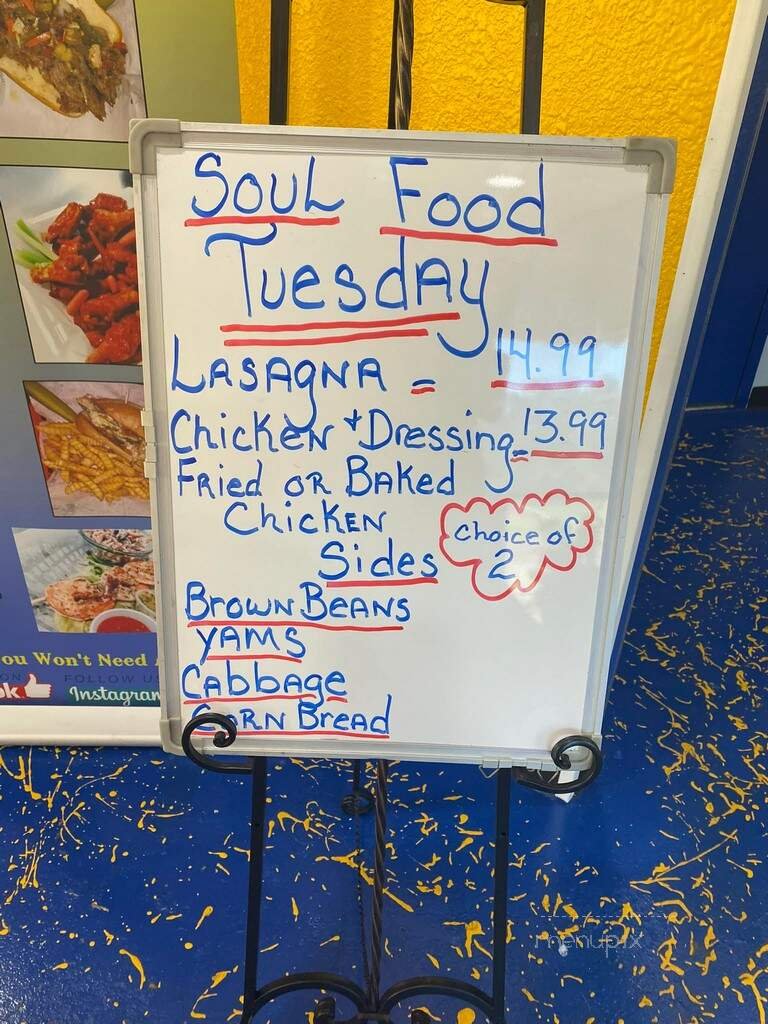 Soul Food
Tuesday
Lasagna = 14.99
Chicken + Dressing = 13.99
Fried or Baked
Chicken
choice of
2
Sides
Brown Beans
Yams
Cabbage
Corn Bread
ou Won't Need
ON FOLLOW U
ok Instagram
menupix